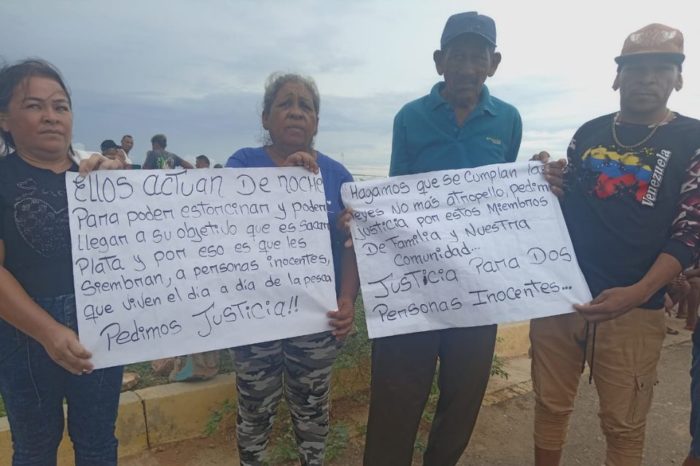 Ellos actuan De noche
Para poder estorcinar y poder
llegar a su objetivo que es sacar
Plata y por eso es que les
siembran, a personas inocentes,
que viven el día a día de la pesca
Pedimos Justicia!!
Hagamos que se cumplan las
leyes No más atropello, pedimos
justicia por estos Miembros
De familia y Nuestra
comunidad...
Justicia Para Dos
Personas Inocentes...
Venezuela